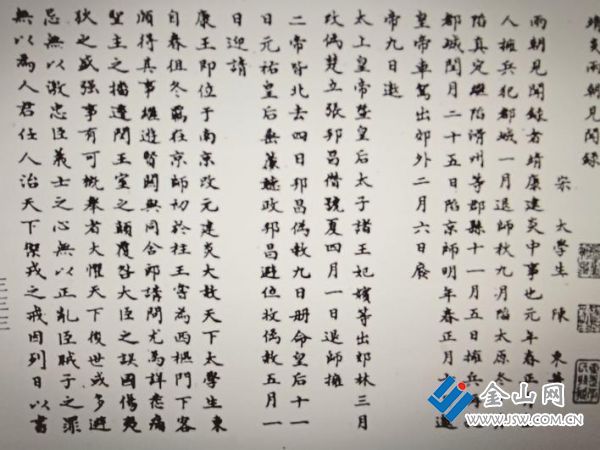 靖炎兩朝見聞錄
宋 太學生 陳 東
兩朝見聞錄者靖康建炎中事也元年春正
人擁兵犯都城一月退師秋九月陷太原冬
陷真定繼陷滑州等郡縣十一月五日擁兵
都城閏月二十五日陷京師明年春正月十
皇帝車駕出郊外二月六日廢
帝九日逼
太上皇帝暨皇后太子諸王妃嬪等出郊林三月
攻僞楚立張邦昌僭號夏四月一日退師擁
二帝皆北去四日邦昌僞敕九日册命皇后十一
日元祐皇后垂簾聽政邦昌避位收僞敕五月一
日迎請
康王即位于南京改元建炎大敕天下太學生東
自春徂冬寓在京師切於柱王害為西樞門下客
頗得其事機遊賢關與同舍郎請問尤為詳悉痛
聖主之播遷閔王室之顛覆咎大臣之誤國傷夷
狄之盛强事有可概舉者大懼天下後世或多避
忌無以激忠臣義士之心無以正亂臣賊子之罪
無以為人君任人治天下傑戎之戒因列日以書
三三三
金山网
WWW.JSW.COM.CN